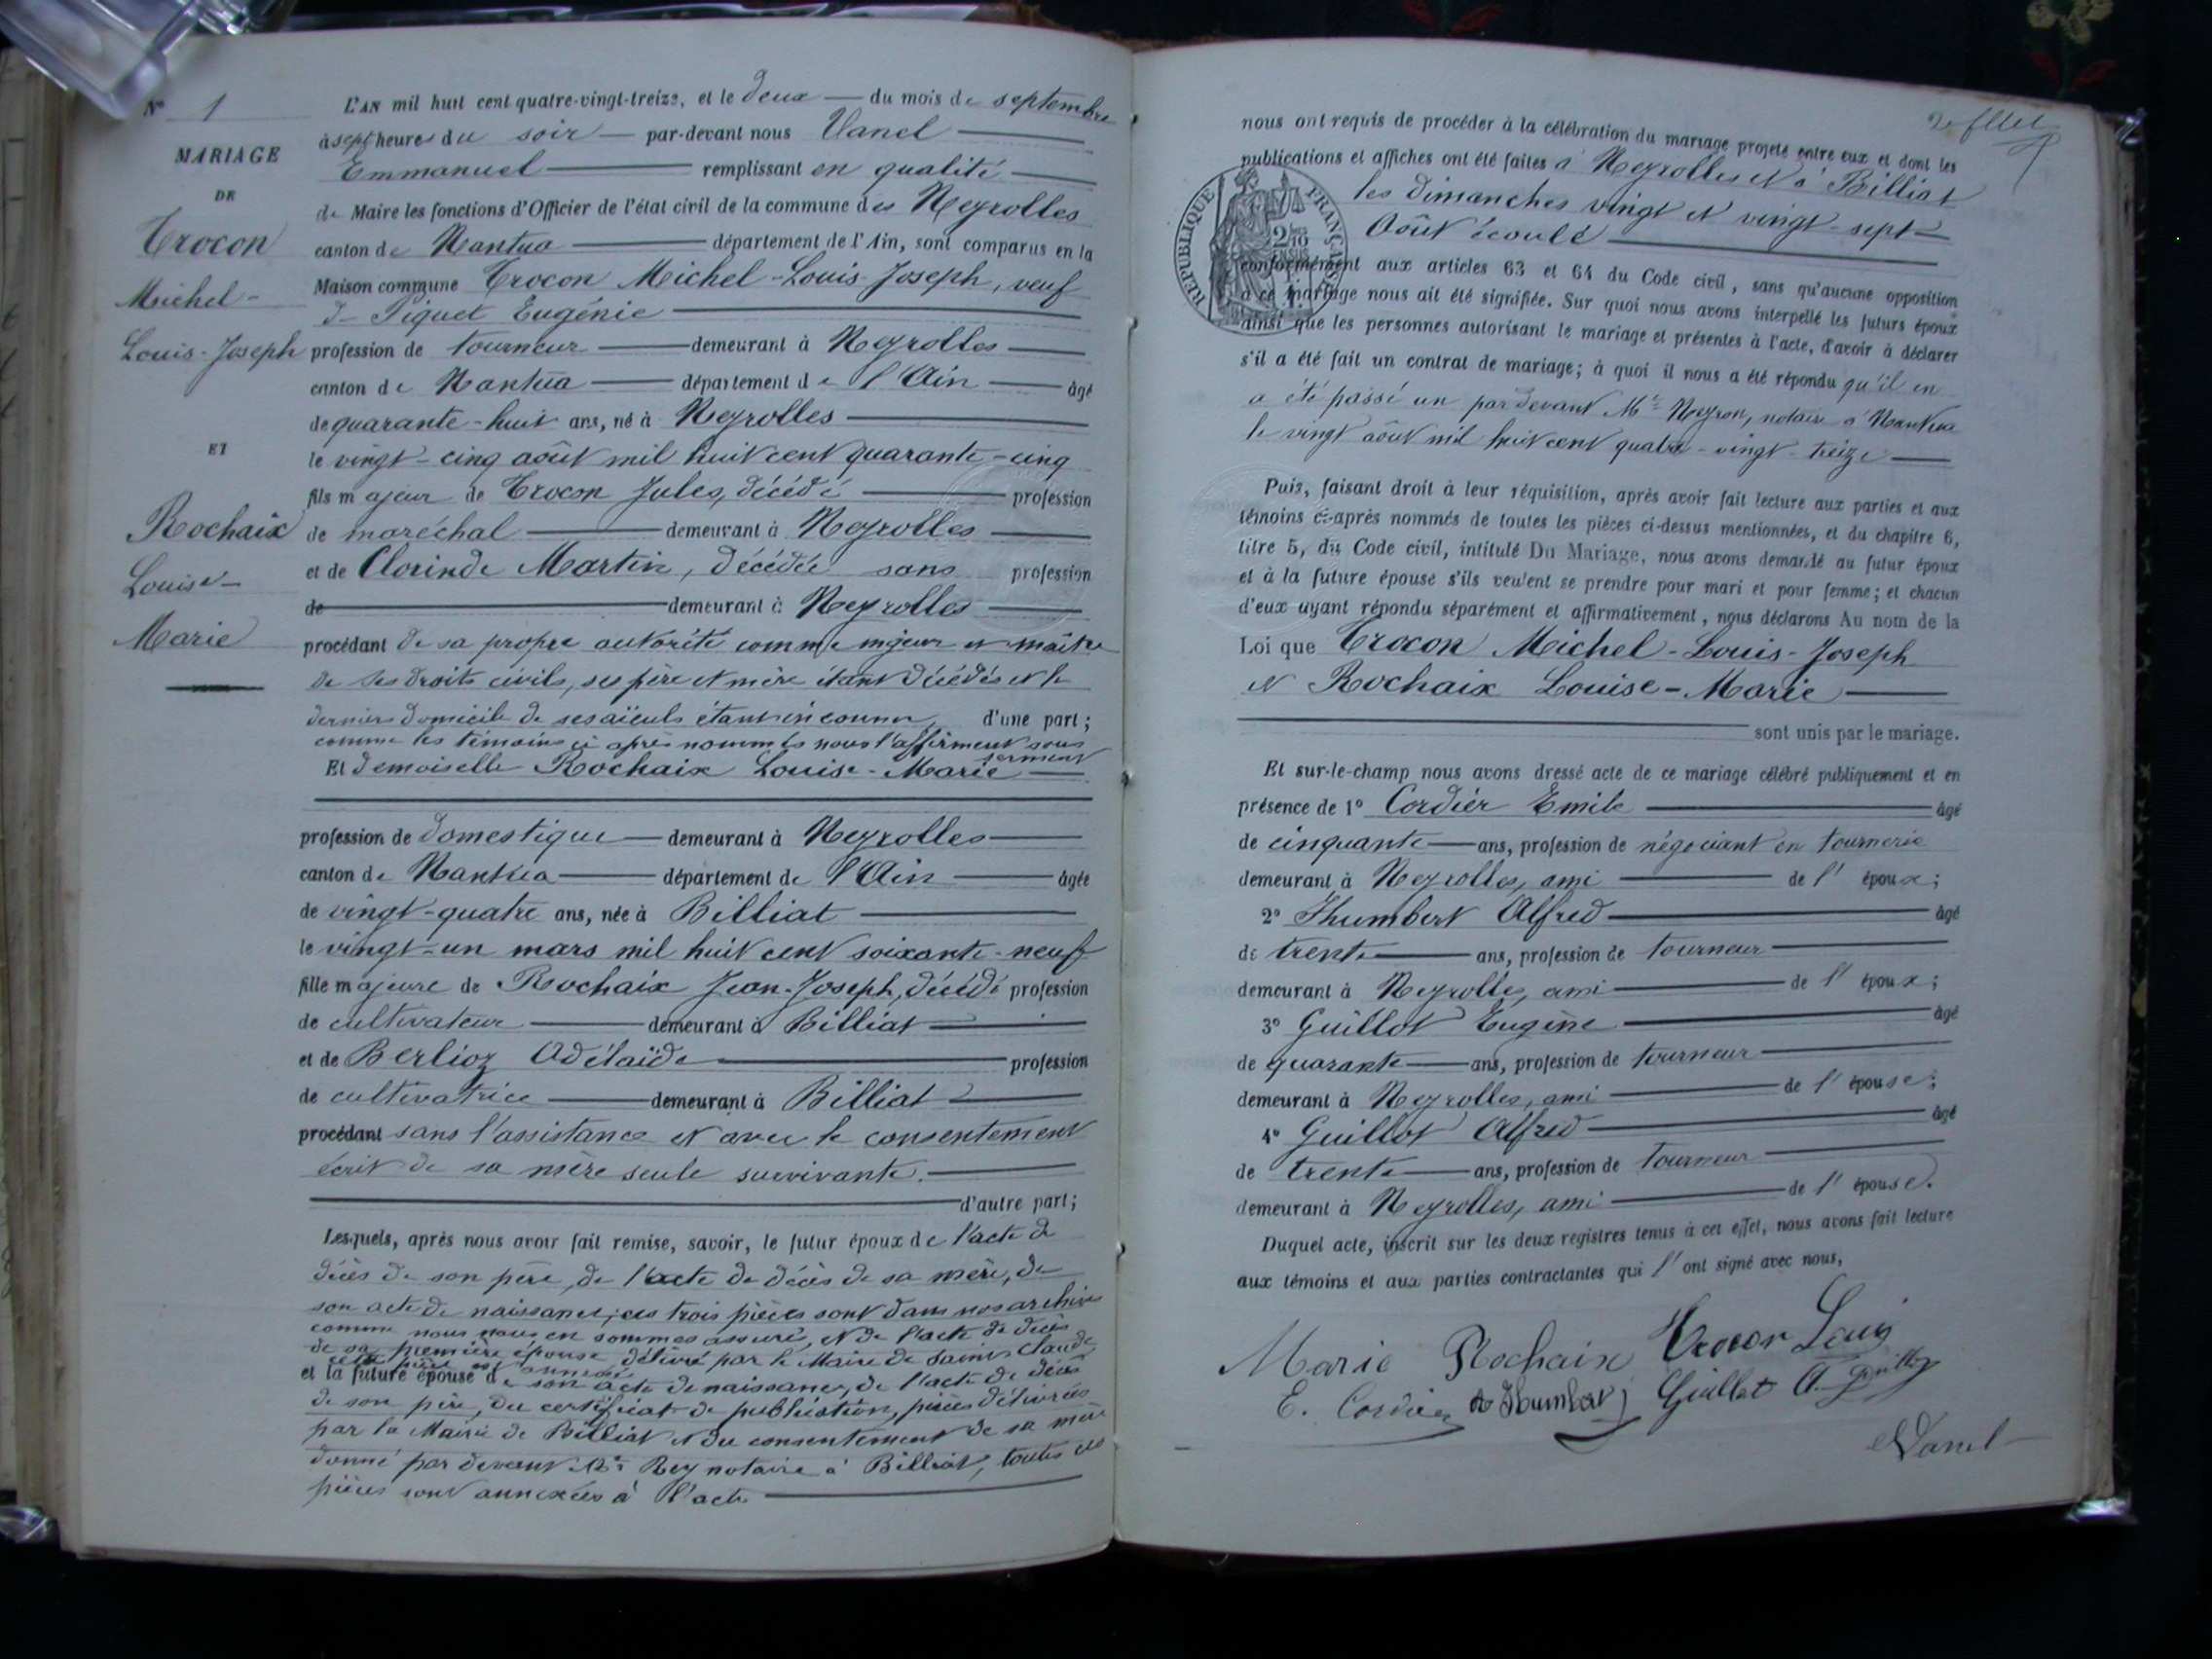 N° 1
MARIAGE
DE
Trocon
Michel-
Louis-Joseph
ET
Rochaix
Louise-
Marie
L'AN mil huit cent quatre-vingt-treize, et le deux du mois de septembre
à sept heures du soir par-devant nous Vanel
Emmanuel remplissant en qualité
de Maire les fonctions d'Officier de l'état civil de la commune des Neyrolles
canton de Nantua département de l'Ain, sont comparus en la
Maison commune Trocon Michel-Louis-Joseph, veuf
d- Piquet Eugénie
profession de tourneur demeurant à Neyrolles
canton de Nantua département de l'Ain âgé
de quarante-huit ans, né à Neyrolles
le vingt-cinq août mil huit cent quarante-cinq
fils majeur de Trocon Jules, décédé profession
de maréchal demeurant à Neyrolles
et de Clorinde Martin, décédée sans profession
de demeurant à Neyrolles
procédant de sa propre autorité comme majeur et maître
de ses droits civils, ses père et mère étant décédés et le
dernier domicile de ses aïeuls étant inconnu, d'une part;
comme les témoins ci après nommés nous l'affirment sous
serment
Et demoiselle Rochaix Louise-Marie
profession de domestique demeurant à Neyrolles
canton de Nantua département de l'Ain âgée
de vingt-quatre ans, née à Billiat
le vingt-un mars mil huit cent soixante-neuf
fille majeure de Rochaix Jean-Joseph, décédé profession
de cultivateur demeurant à Billiat
et de Berlioz Adélaïde profession
de cultivatrice demeurant à Billiat
procédant sans l'assistance et avec le consentement
écrit de sa mère seule survivante.
d'autre part;
Lesquels, après nous avoir fait remise, savoir, le futur époux de l'acte de
décès de son père, de l'acte de décès de sa mère, de
son acte de naissance; ces trois pièces sont dans nos archives
comme nous nous en sommes assuré, et de l'acte de décès
de sa première épouse délivré par le Maire de Saint Claude,
cette pièce est annexée
et la future épouse de son acte de naissance, de l'acte de décès
de son père, du certificat de publication, pièces délivrées
par la Mairie de Billiat et du consentement de sa mère
donné par devant Me Rey notaire à Billiat, toutes ces
pièces sont annexées à l'acte
nous ont requis de procéder à la célébration du mariage projeté entre eux et dont les
publications et affiches ont été faites à Neyrolles et à Billiat
les dimanches vingt et vingt-sept
Août écoulé
RÉPUBLIQUE FRANÇAISE
conformément aux articles 63 et 64 du Code civil, sans qu'aucune opposition
à ce mariage nous ait été signifiée. Sur quoi nous avons interpellé les futurs époux
ainsi que les personnes autorisant le mariage et présentes à l'acte, d'avoir à déclarer
s'il a été fait un contrat de mariage; à quoi il nous a été répondu qu'il en
a été passé un par devant Me Neyron, notaire à Nantua
le vingt août mil huit cent quatre-vingt-treize
Puis, faisant droit à leur réquisition, après avoir fait lecture aux parties et aux
témoins ci-après nommés de toutes les pièces ci-dessus mentionnées, et du chapitre 6,
titre 5, du Code civil, intitulé Du Mariage, nous avons demandé au futur époux
et à la future épouse s'ils veulent se prendre pour mari et pour femme; et chacun
d'eux ayant répondu séparément et affirmativement, nous déclarons Au nom de la
Loi que Trocon Michel-Louis-Joseph
et Rochaix Louise-Marie
sont unis par le mariage.
Et sur-le-champ nous avons dressé acte de ce mariage célébré publiquement et en
présence de 1° Cordier Emile âgé
de cinquante ans, profession de négociant en tournerie
demeurant à Neyrolles, ami de l'époux;
2° Humbert Alfred âgé
de trente ans, profession de tourneur
demeurant à Neyrolles, ami de l'époux;
3° Guillot Eugène âgé
de quarante ans, profession de tourneur
demeurant à Neyrolles, ami de l'épouse;
4° Guillot Alfred âgé
de trente ans, profession de tourneur
demeurant à Neyrolles, ami de l'épouse.
Duquel acte, inscrit sur les deux registres tenus à cet effet, nous avons fait lecture
aux témoins et aux parties contractantes qui l'ont signé avec nous,
Marie Rochaix Trocon Louis
E. Cordier A Humbert Guillot A. Guillot
E Vanel